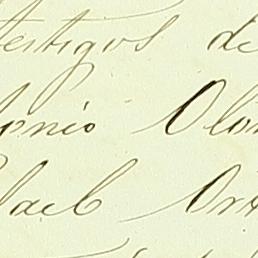 testigos de
onio Olo
fael Ort